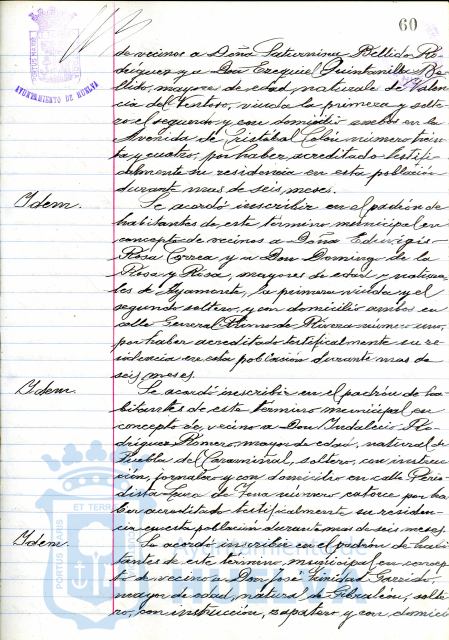 60
AYUNTAMIENTO DE HUELVA
de vecinos a Doña Saturnina Bellido Ro-
dríguez y a Don Ezequiel Quintanilla Be-
llido, mayores de edad, naturales de Valen-
cia del Ventoso, viuda la primera y solte-
ro el segundo, y con domicilio ambos en la
Avenida de Cristóbal Colón número trein-
ta y cuatro, por haber acreditado testifi-
calmente su residencia en esta población
durante mas de seis meses.
Idem. Se acordó inscribir en el padrón de
habitantes de este término municipal en
concepto de vecinos a Doña Eduvigis
Rosa Correa y a Don Domingo de la
Rosa y Rosa, mayores de edad y natura-
les de Ayamonte, la primera viuda y el
segundo soltero, y con domicilio ambos en
calle General Primo de Rivera número uno,
por haber acreditado testificalmente su re-
sidencia en esta población durante mas de
seis meses.
Idem. Se acordó inscribir en el padrón de ha-
bitantes de este término municipal en
concepto de vecino a Don Indalecio Ro-
dríguez Romero, mayor de edad, natural de
Puebla del Caramiñal, soltero, con instruc-
ción, jornalero y con domicilio en calle Perio-
dista Luca de Tena número catorce por ha-
ber acreditado testificalmente su residen-
cia en esta población durante mas de seis meses.
Idem. Se acordó inscribir en el padrón de habi-
tantes de este término municipal en concep-
to de vecino a Don José Trinidad Garrido,
mayor de edad, natural de Gibraleón, solte-
ro, con instrucción, zapatero y con domici-
Ayuntamiento de
HUELVA